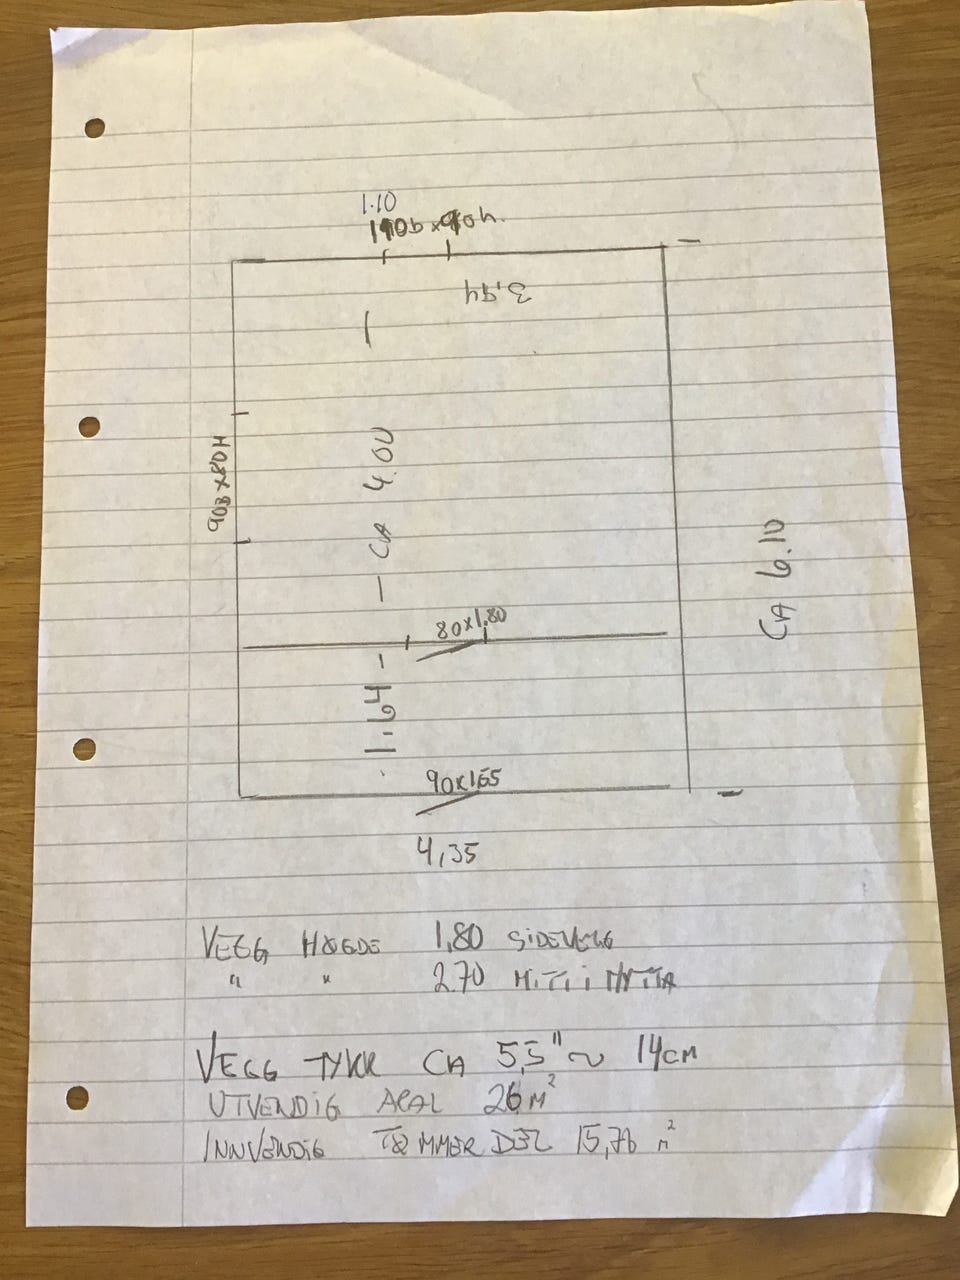 1.10
110b x 90h.
3,94
90B x 80H
CA 4.00
CA 6.10
80 x 1.80
1.64
90 x 1,65
4,35
VEGG HØGDE 1,80 SIDEVEGG
" " 2.70 MITT i HYTTA
VEGG TYKK CA 5,5" ~ 14 CM
UTVENDIG AREAL 26 M²
INNVENDIG TØMMER DEL 15,76 M²